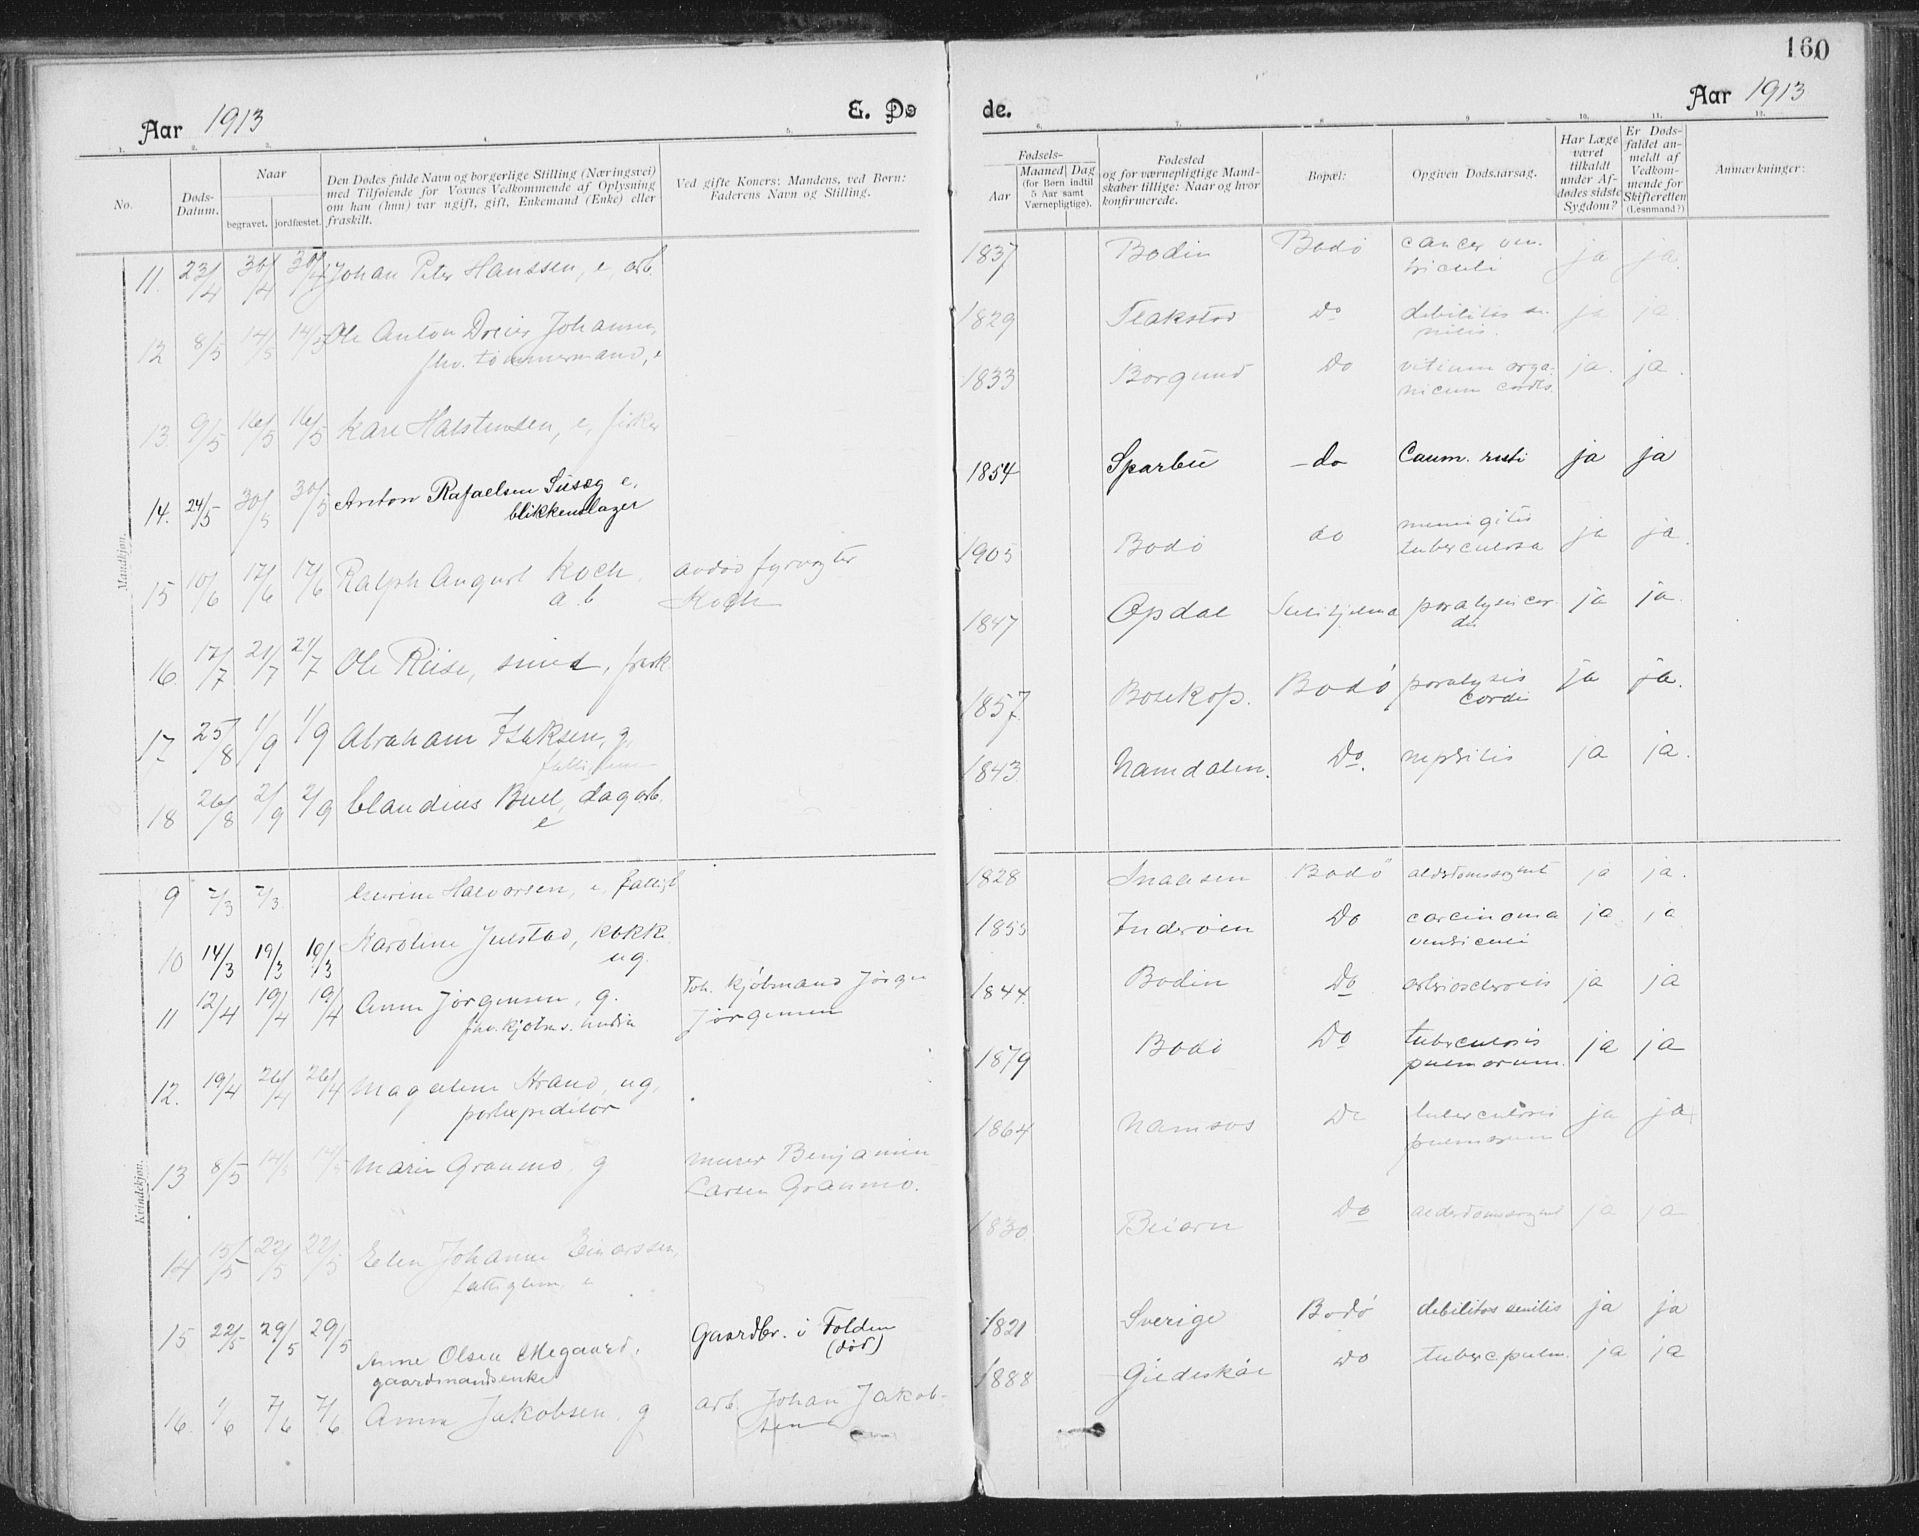 160
Aar 1913
E. Dø
de.
Aar 1913
1.
2.
3.
4.
5.
6.
7.
8.
9.
10.
11.
12.
No.
Døds-
Datum.
Naar
begravet.
jordfæstet.
Den Dødes fulde Navn og borgerlige Stilling (Næringsvei)
med Tilføiende for Voxnes Vedkommende af Oplysning
om han (hun) var ugift, gift, Enkemand (Enke) eller
fraskilt.
Ved gifte Koners: Mandens, ved Børn:
Faderens Navn og Stilling.
Fødsels-
Aar
Maaned
Dag
(for Børn indtil
5 Aar samt
Værnepligtige).
Fødested
og for værnepligtige Mand-
skaber tillige: Naar og hvor
konfirmerede.
Bopæl:
Opgiven Dødsaarsag.
Har Læge
været
tilkaldt
under Af-
dødes sidste
Sygdom?
Er Døds-
faldet an-
meldt af
Vedkom-
mende for
Skifteretten
(Lesnmand?)
Anmærkninger:
Mandkjøn.
11. 23/4 30/4 30/4 Johan Peter Hanssen, e, arb. 1837 Bodin Bodø cancer ven-
triculi ja ja
12 8/5 14/5 14/5 Ole Anton Dreier Johansen,
fhv. tømmermand, e 1829 Flakstad Do debilitas se-
nilis. ja ja
13 9/5 16/5 16/5 Kare Halstensen, e, fisker 1833 Borgund Do vitium orga-
nicum cordis. ja. ja.
14. 24/5 30/5 30/5 Anton Rafaelsen Suseg e.
blikkenslager 1854 Sparbu - do ja ja
15 10/6 17/6 17/6 Ralph August Koch,
a.b avdød fyrvogter
Koch 1905 Bodø do meningitis
tuberculosa ja ja.
16. 17/7 21/7 21/7 Ole Riise, smed, frask. 1847 Opdal Sulitjelma paralysis cor-
dis ja ja.
17 25/8 1/9 1/9 Abraham Isaksen, g,
fattiglem 1857 Bosekop. Bodø paralysis
cordis ja ja.
18 26/8 2/9 2/9 Claudius Bull, dagarb.
e 1843 Namdalen. Do. nephritis ja ja.
Kvindekjøn.
9 7/3 Halvorsen, e, fattigl 1828 Snaasen Bodø alderdomssvaghet ja ja.
10 14/3 19/3 19/3 Karoline Julstad, kokke
ug. 1855 Inderøen Do carcinoma
ventriculi ja ja
11 12/4 19/4 19/4 Anna Jørgensen, g.
fhv. kjøbm. fhv. kjøbmand Jørgen
Jørgensen 1844. Bodin Do arteriosclerosis ja ja
12. 19/4 26/4 26/4 Magdalene Strand, ug,
postexpeditør 1879 Bodø Do tuberculosis
pulmonum. ja ja
13 8/5 14/5 14/5 Marie Granmo, g murer Benjamin
Larsen Granmo. 1864 Namsos Do tuberculosis
pulmonum ja ja
14 15/5 22/5 22/5 Elen Johanne Einarssen,
fattiglem, e 1830 Beiarn Do alderdomssvaghet ja ja
15 22/5 29/5 29/5 Anne Olsen Megaard,
gaardmandsenke Gaardbr. i Folden
(død) 1821 Sverige Bodø debilitas senilis ja ja
16 1/6 7/6 7/6 Anna Jakobsen, g arb. Johan Jakob-
sen 1888 Gildeskål Do tuberc. pulm. ja ja